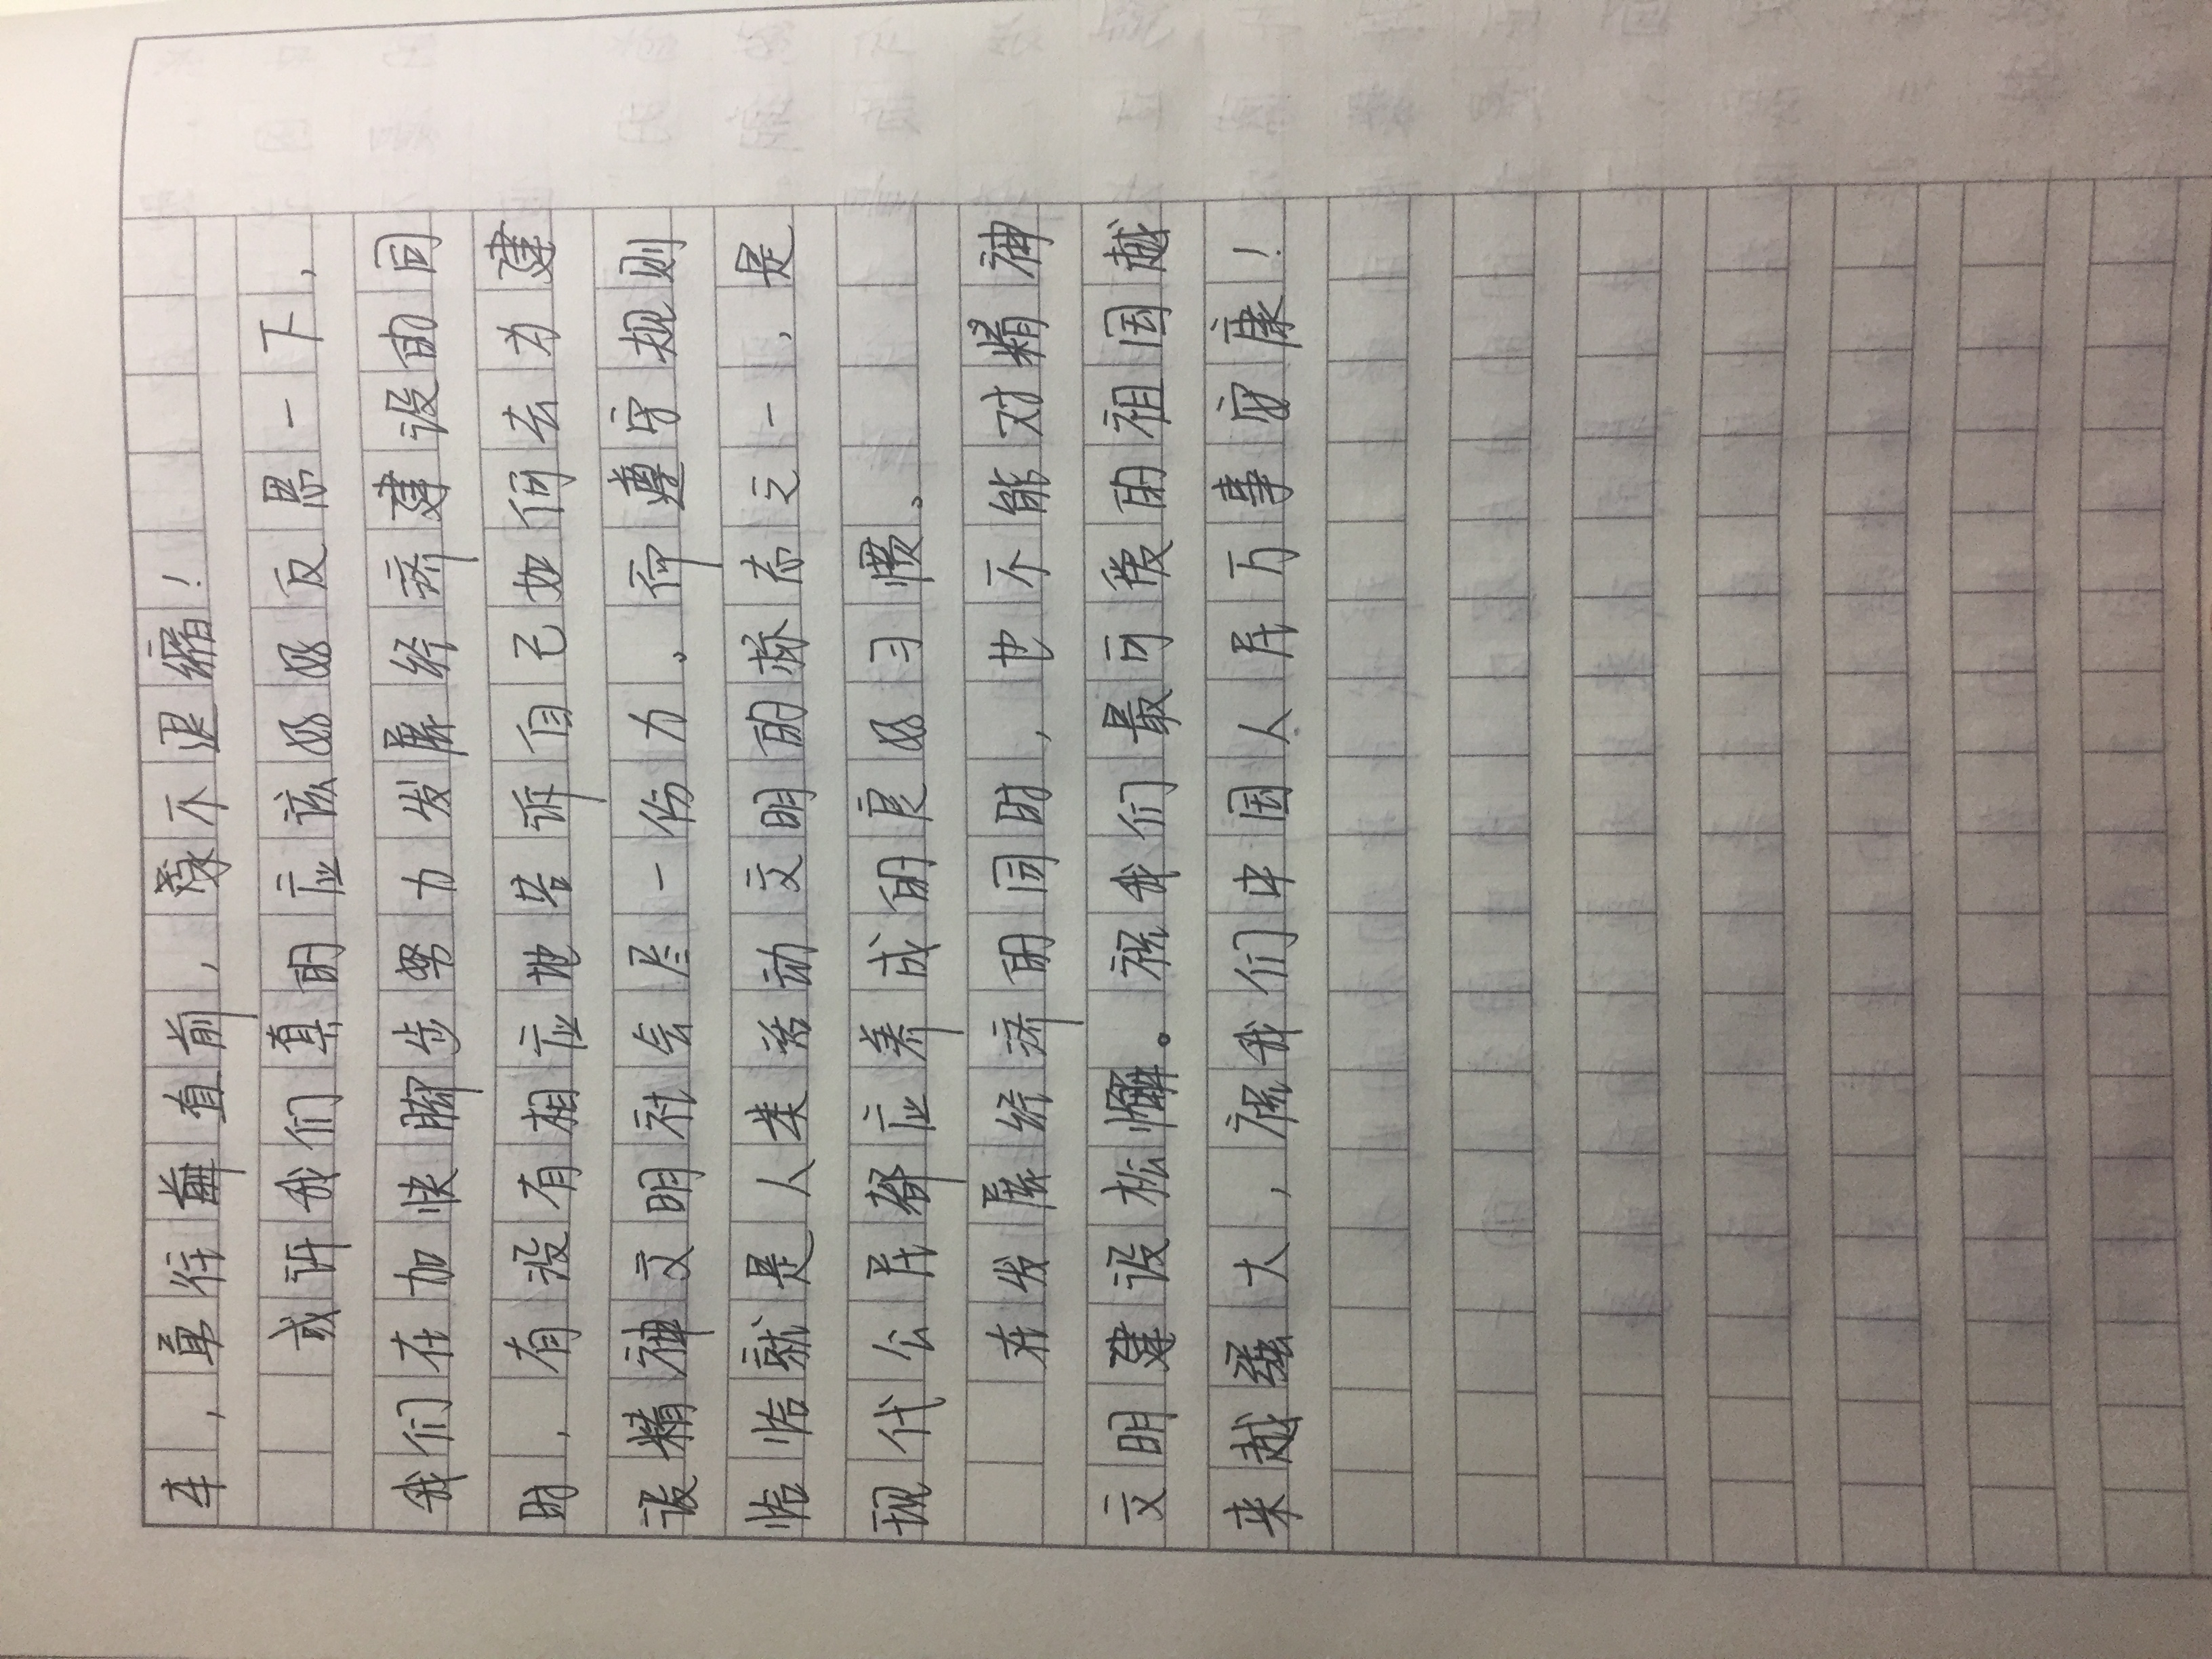 车,勇往直前,永不退缩!
或许我们真的应该好好反思一下,
我们在加快脚步努力发展经济建设的同
时,有没有相应地告诉自己如何去为建
设精神文明社会尽一份力。而遵守规则
恰恰就是人类活动文明的标志之一,是
现代公民都应养成的良好习惯。
在发展经济的同时,也不能对精神
文明建设松懈。祝我们最可爱的祖国越
来越强大,祝我们中国人民万事安康!